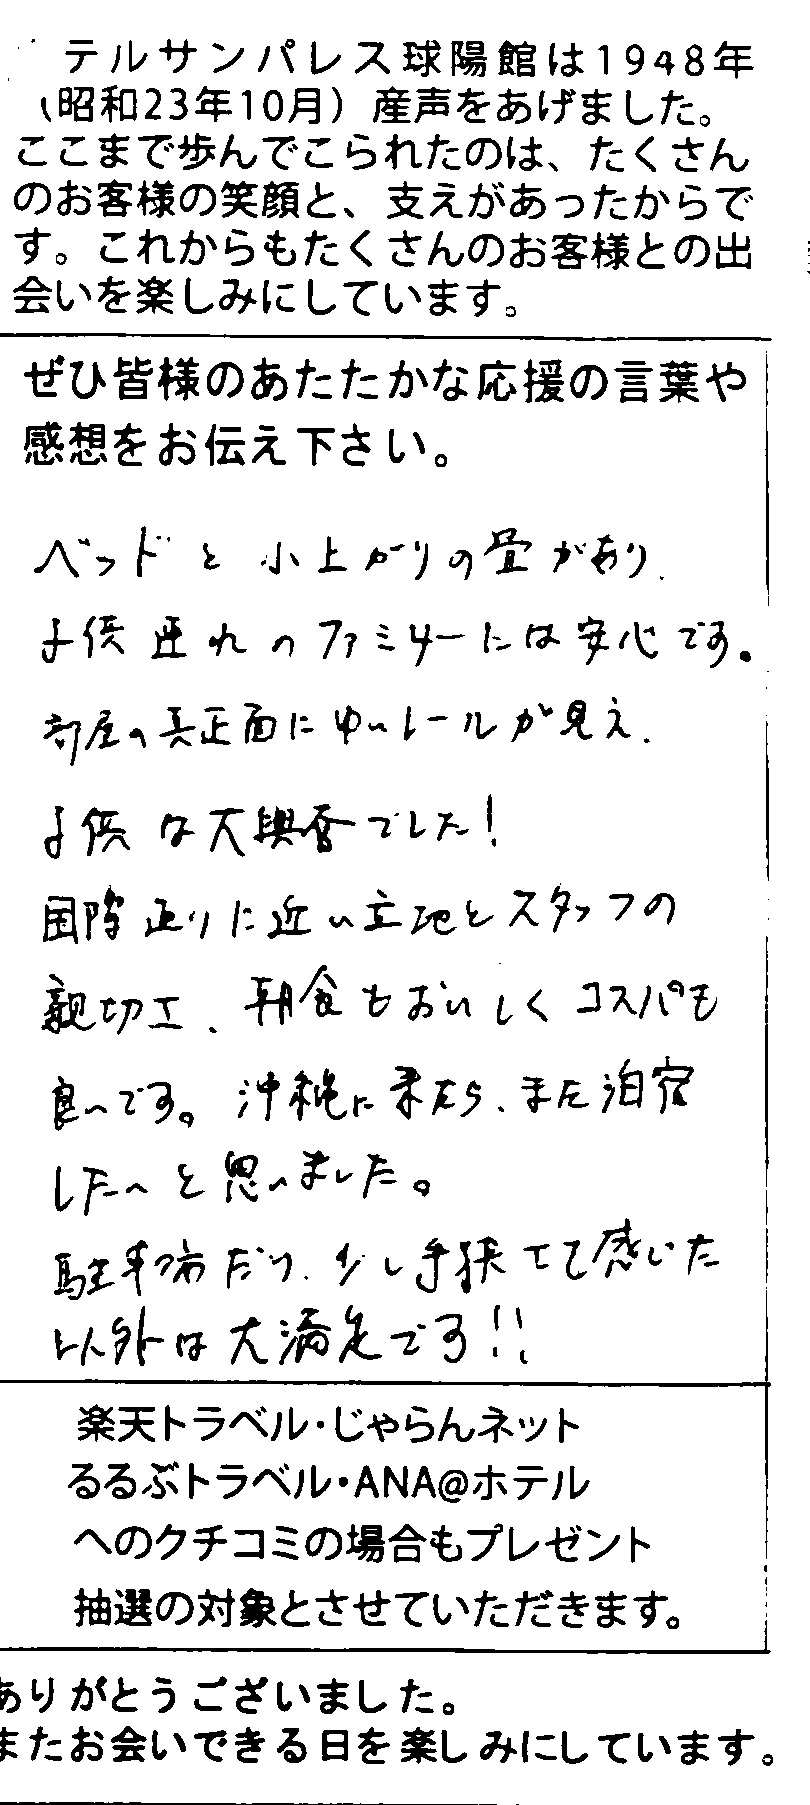 テルサンパレス球陽館は1948年
(昭和23年10月）産声をあげました。
ここまで歩んでこられたのは、たくさん
のお客様の笑顔と、支えがあったからで
す。これからもたくさんのお客様との出
会いを楽しみにしています。
ぜひ皆様のあたたかな応援の言葉や
感想をお伝え下さい。
ベッドと小上がりの畳があり、
子供連れのファミリーには安心です。
部屋の真正面にゆいレールが見え、
子供は大興奮でした！
国際通りに近い立地とスタッフの
親切さ、朝食もおいしくコスパも
良いです。沖縄に来たら、また泊宿
したいと思いました。
駐車場だけ、少し手狭てて感じた
以外は大満足です!!
楽天トラベル・じゃらんネット
るるぶトラベル・ANA@ホテル
へのクチコミの場合もプレゼント
抽選の対象とさせていただきます。
ありがとうございました。
またお会いできる日を楽しみにしています。